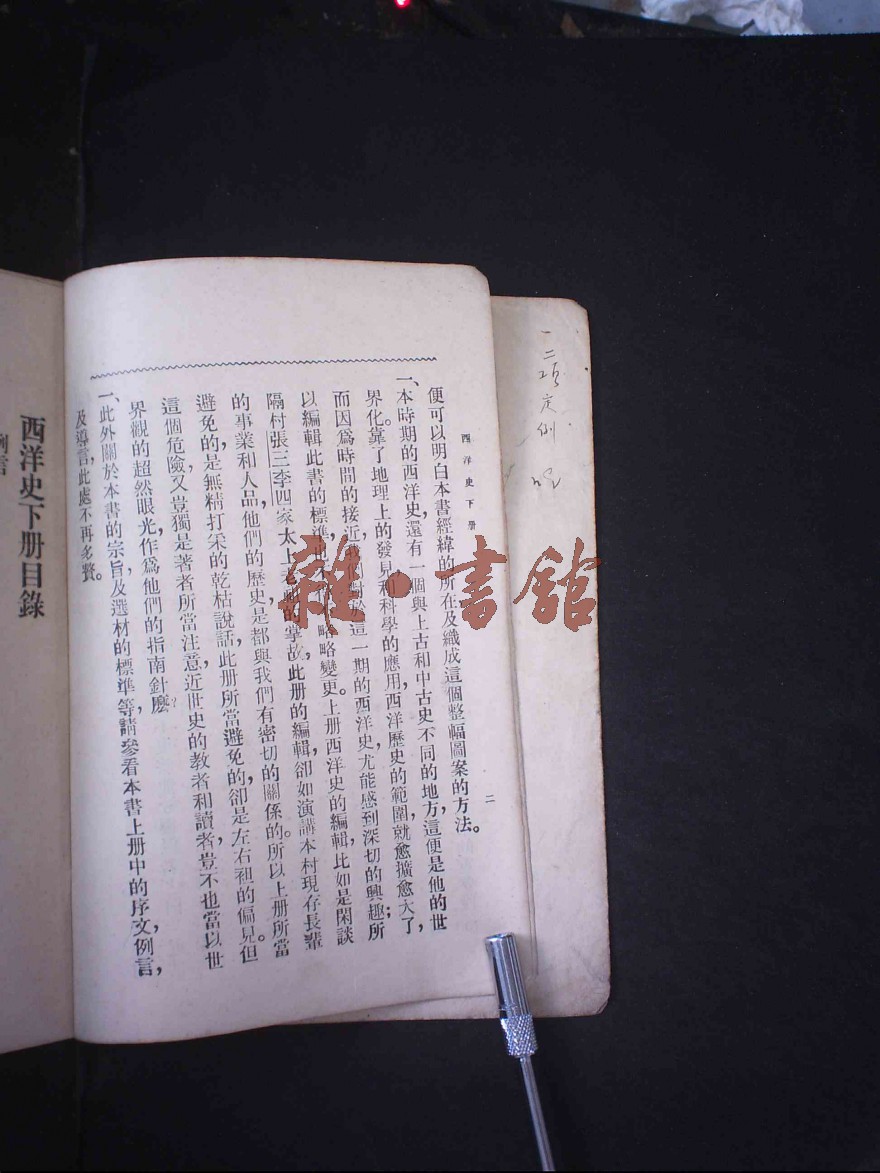 一二項定例
西洋史下册
二
便可以明白本書經緯的所在及織成這個整幅圖案的方法。
一、本時期的西洋史,還有一個與上古和中古史不同的地方,這便是他的世
界化。靠了地理上的發見和科學的應用,西洋歷史的範圍,就愈擴愈大了,
而因爲時間的接近,我們對於這一期的西洋史,尤能感到深切的興趣;所
以編輯此書的標準,也不略略變更。上册西洋史的編輯,比如是閑談
隔村張三李四家太上老的掌故,此册的編輯,卻如演講本村現存長輩
的事業和人品,他們的歷史,是都與我們有密切的關係的。所以上册所當
避免的,是無精打采的乾枯說話,此册所當避免的,卻是左右袒的偏見。但
這個危險,又豈獨是著者所當注意,近世史的教者和讀者,豈不也當以世
界觀的超然眼光,作爲他們的指南針麽?
一、此外關於本書的宗旨,及選材的標準等,請參看本書上册中的序文,例言,
及導言,此處不再多贅。
西洋史下册目錄
例言
雜·書館